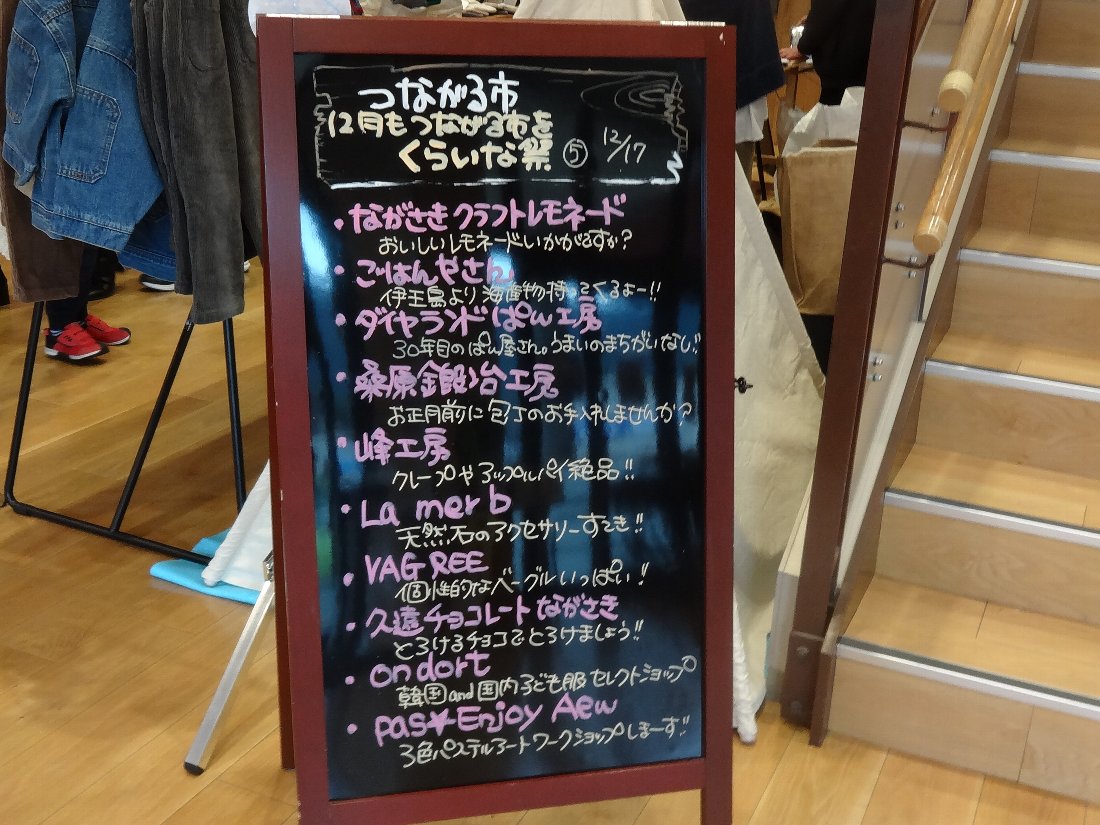 つながる市
12月もつながる市を
くらいな祭 ⑤ 12/17
・ながさきクラフトレモネード
おいしいレモネードいかがるすか?
・ごはんやさん
伊王島より海産物持ってくるよー!!
・ダイヤランドぱん工房
30年目のぱん屋さん。うまいのまちがいなし!!
・桑原鍛冶工房
お正月前に包丁のお手入れしませんか?
・峰工房
クレープやアップルパイ絶品!!
・La mer b
天然石のアクセサリーすてき!!
・VAG REE
個性的なベーグルいっぱい!
・久遠チョコレートながさき
とろけるチョコでとろけましょう!!
・on dort
韓国and国内子ども服セレクトショップ
・pas★Enjoy Aew
3色パステルアートワークショップしまーす!!